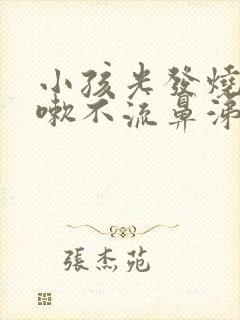 小孩光發燒
嗽不流鼻涕
張杰苑